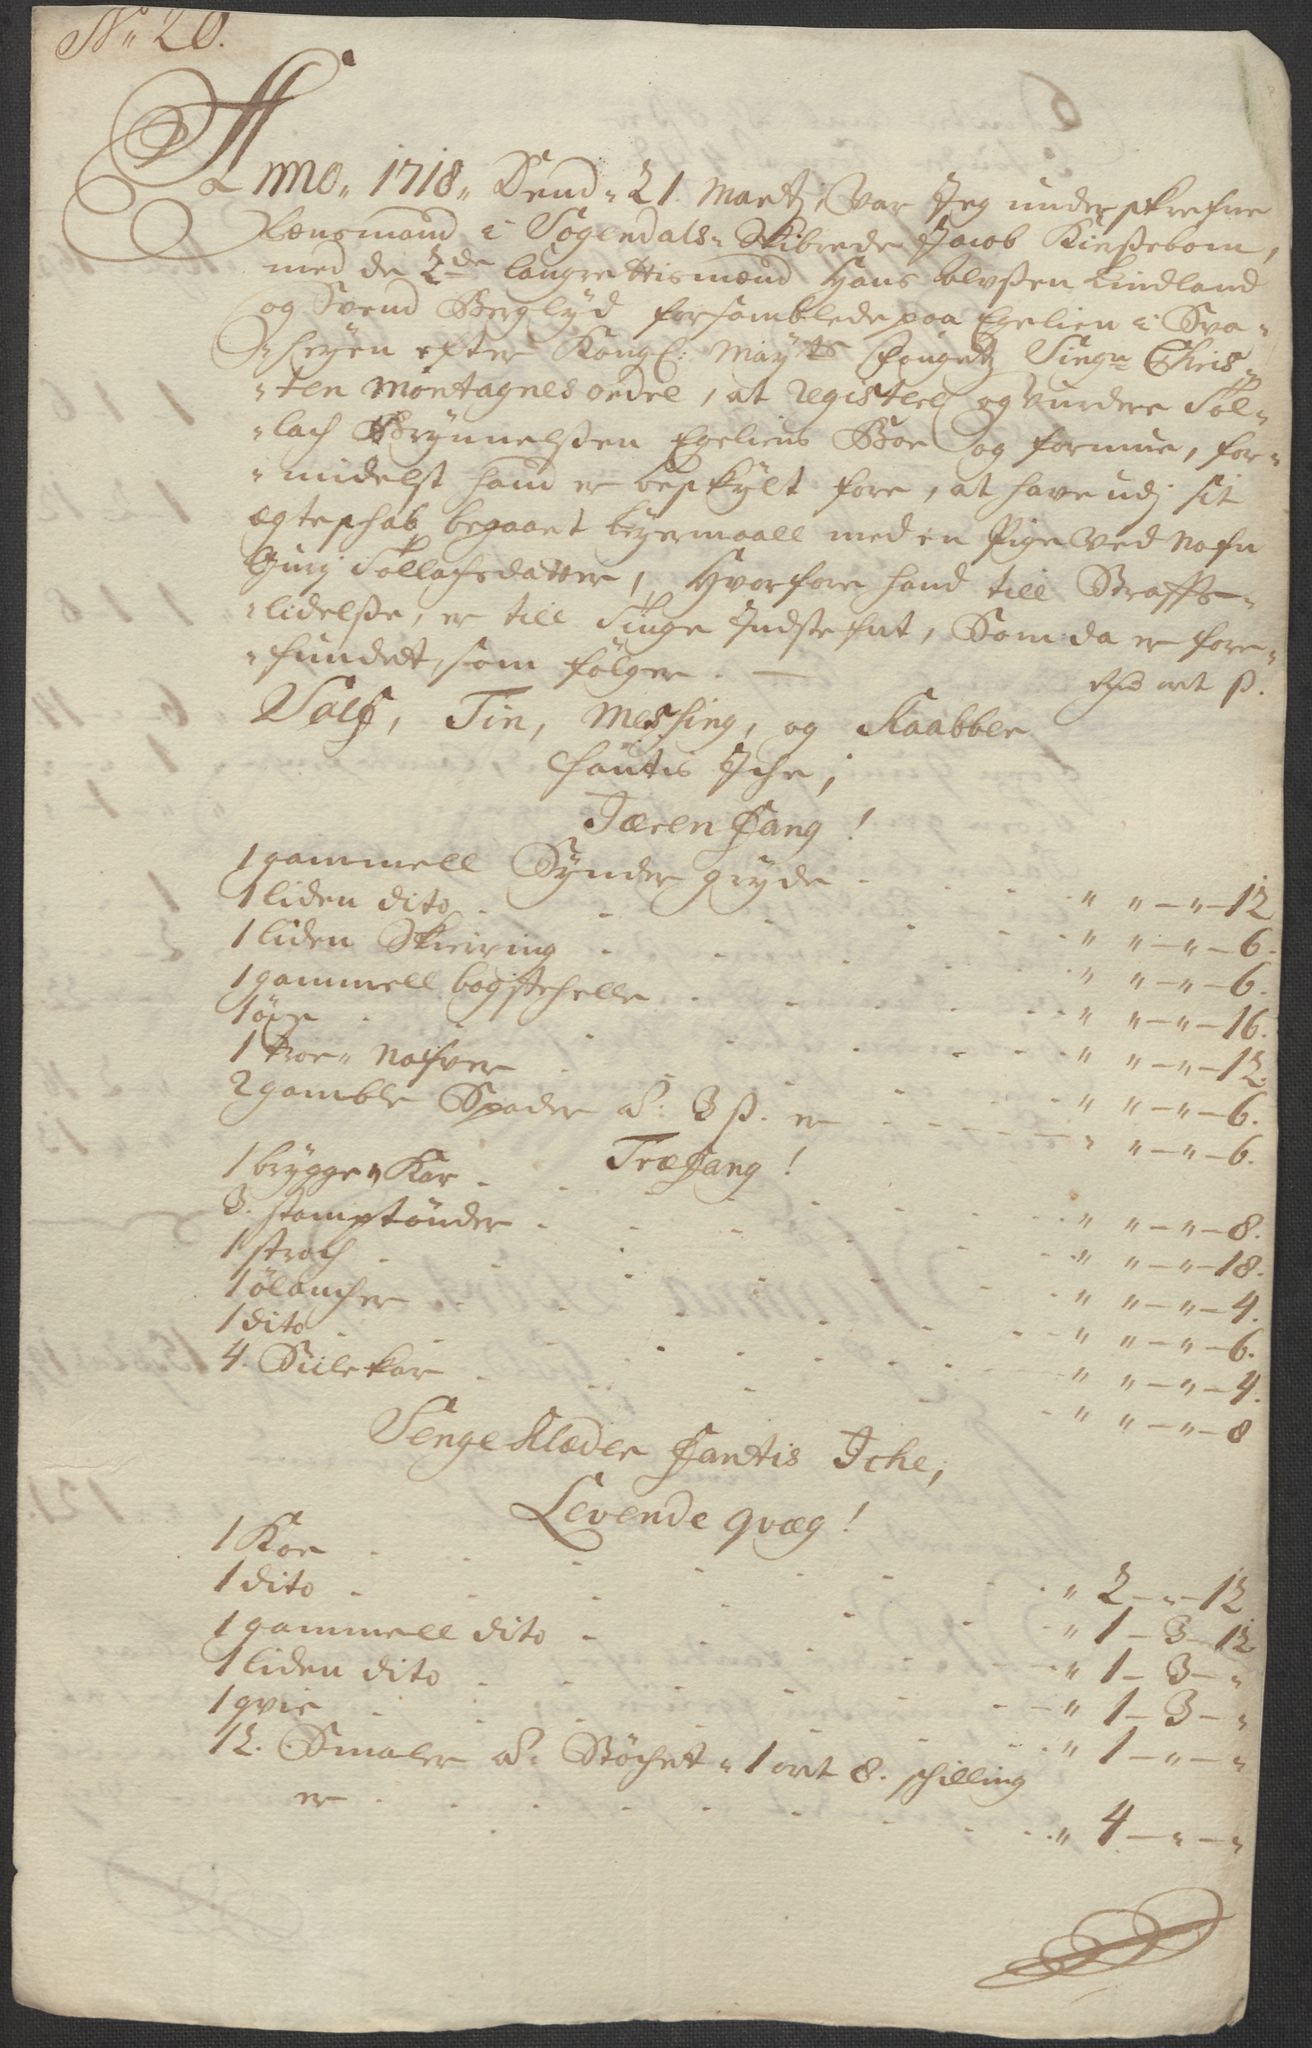 No 20.
Anno 1718 Dend 21 Martj, Var Jeg underskrefne
Lensmand i Sogendals Skibrede Jacob Kirsebom,
med de 2de laugrettismænd Hans Olvßen Lindland
og Svend Berglyd forsamblede paa Egelien i Sva-
heyen efter Kongl: Mayts Fougets Siegr Chris-
ten Montagnes ordre, at registere og vurdere Tol-
lach Brynnelßen Egeliens Boe og formue, for-
midelst hand er beskylt fore, at have udj sit
ægteskab begaaet leyermaall med en Pige ved Nafn
Gurj Tollachsdatter, Hvorfore hand till Straffs-
lidelße, er till Tinge Indstefnt, Som da er fore-
fundet, som følger. —
rhd ort ß.
Sølf, Tin, Meshing, og Kaabber
fantis Iche;
Jæren Fang!
1 gammell Synder gryde " " — " — 12
1 liden dito " " — " — 6.
1 liden Skiering " " — " — 6.
1 gammell bagstehelle " " — " — 16.
1 öxe " " — " — 12.
1 Kroe Nafver " " — " — 6.
2 gamble Spader a: 3 ß. er " " — " — 6.
TræFang!
1 brygge Kar " " — " — 8.
3. stamptønder " " — " — 18.
1 stroch " " — " — 4.
1 ölancher " " — " — 6.
1 dito " " — " — 4.
4. Siilekar " " — " — 8
Senge Klæder Fantis Iche,
Levende qvæg!
1 Koe " 2 — " — 12
1 dito " 1 — 3 — 12
1 gammell dito " 1 — 3 — "
1 liden dito " 1 — 3 — "
1 qvie " 1 — " — "
12. Smaler a: Støchet 1 ort 8. schilling
er " 4 — " — "